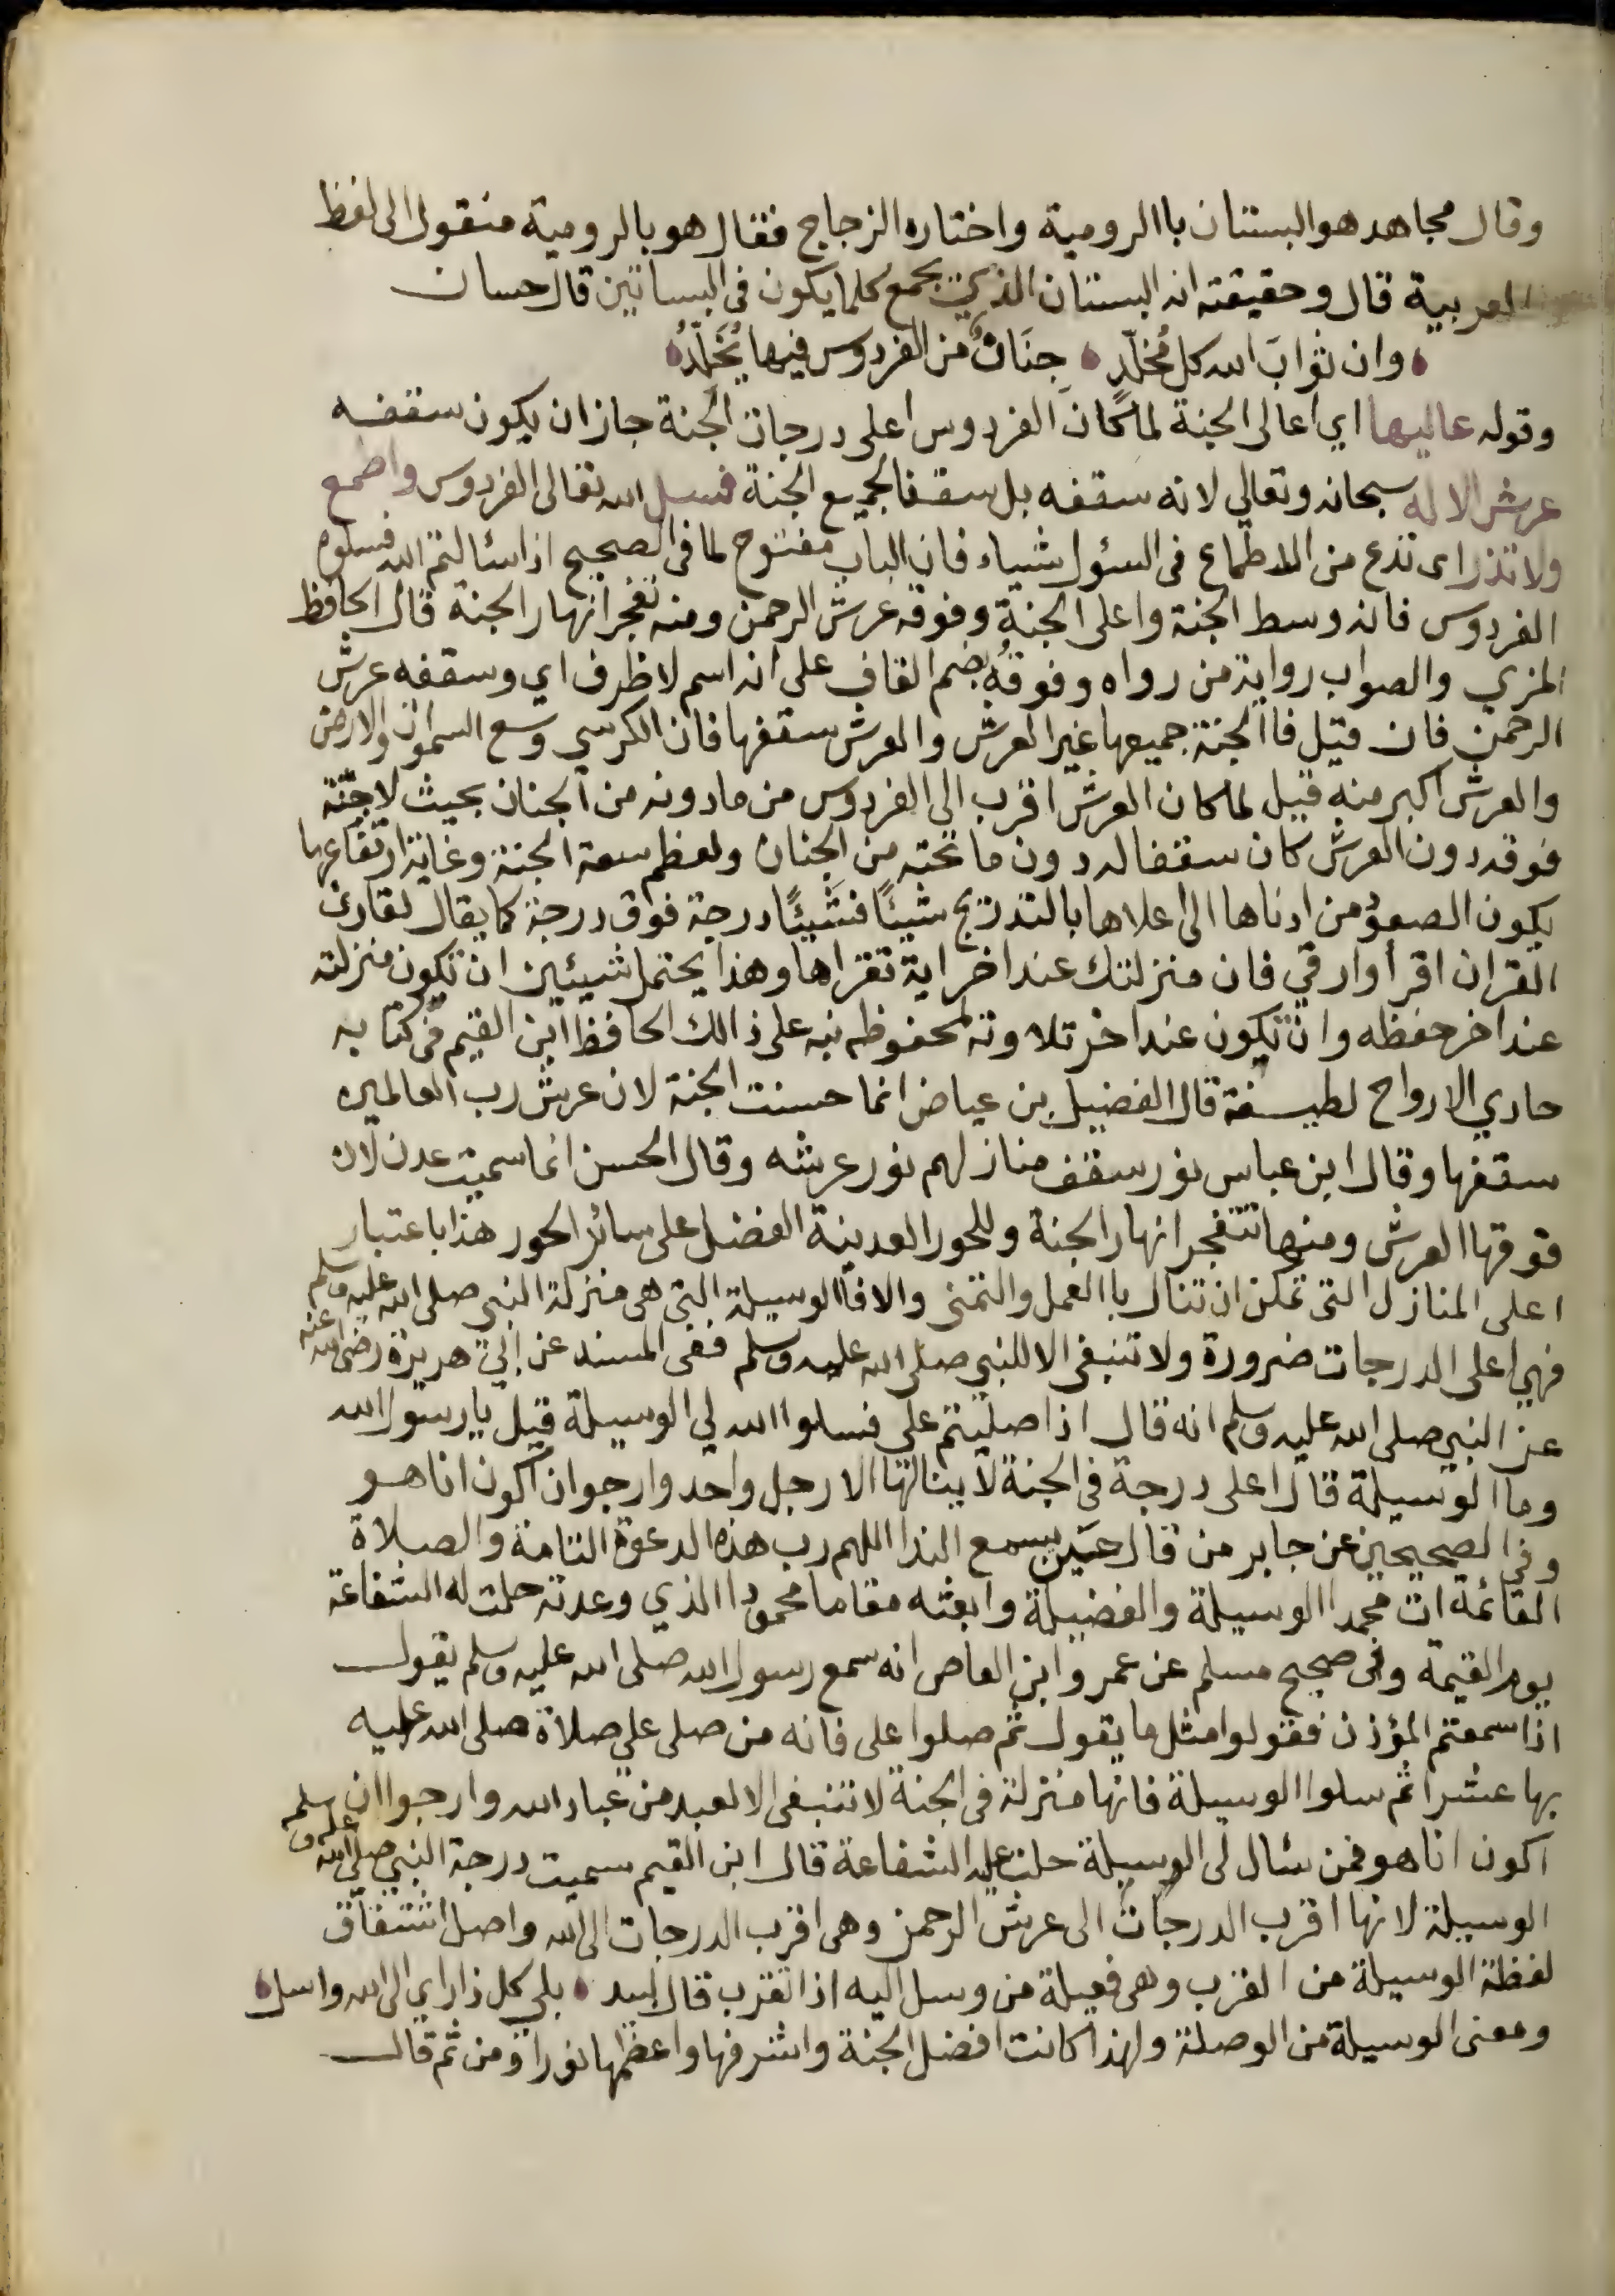 وقال مجاهد هو البستان باالرومية واختاره الزجاج فقال هو بالرومية منقول الى لفظ
العربية قال وحقيقته انه البستان الذي يجمع كلما يكون في البساتين قال حسان
وان ثوابَ الله كل مُخلّدٍ جِنَانٌ من الفردوس فيها يُخَلَّدُ
وقوله عاليها اي اعالى الجنة لما كانَ الفردوس اعلى درجات الجنة جاز ان يكون سقفه
عرش الاله سبحانه وتعالي لانه سقفه بل سقفا لجميع الجنة فسل الله تعالى الفردوس واطمع
ولا تذر اى تدع من الاطماع فى السؤل شياء فان الباب مفتوح لما فى الصحيح اذا سئالتم الله فسلوه
الفردوس فانه وسط الجنة واعلى الجنة وفوقه عرش الرحمن ومنه تفجر انهار الجنة قال الحافظ
المزي والصواب رواية من رواه وفوقُه بضم القاف على انه اسم لا ظرف اي وسقفه عرش
الرحمن فان قيل فاالجنة جميعها غير العرش والعرش سقفها فان الكرسي وسع السموات والارض
والعرش اكبر منه قيل لما كان العرش اقرب الى الفردوس من مادونه من الجنان بحيث لا جنة
فوقه دون العرش كان سقفا له دون ما تحته من الجنان ولعظم سعة الجنة وغاية ارتفاعها
يكون الصعود من ادناها الى اعلاها بالتدريج شيئًا فشيئًا درجة فوق درجة كما يقال لقارئ
القران اقرأ وارقي فان منزلتك عند اخر اية تقراها وهذا يحتمل شيئين ان تكون منزلته
عند اخر حفظه وان تكون عند اخر تلاوته لمحفوظه نبه على ذالك الحافظ ابن القيم في كتابه
حادي الارواح لطيفة قال الفضيل بن عياض انما حسنت الجنة لان عرش رب العالمين
سقفها وقال ابن عباس نور سقف منازلهم نور عرشه وقال الحسن انما سميت عدن لان
فوقها العرش ومنها تتفجر انهار الجنة وللحور العدينة الفضل على سائر الحور هذا باعتبار
اعلى المنازل التى تمكن ان تنال باالعمل والتمنى والا فاالوسيلة التى هى منزلة النبي صلى الله عليه وسلم
فهي اعلى الدرجات ضرورة ولا تنبغي الا للنبي صلى الله عليه وسلم ففى المسند عن ابي هريرة رضى الله عنه
عن النبي صلى الله عليه وسلم انه قال اذا صليتم علي فسلوا الله لي الوسيلة قيل يا رسول الله
وما الوسيلة قال اعلى درجة فى الجنة لا ينالها الا رجل واحد وارجوا ن اكون انا هو
وفى الصحيحين عن جابر من قال حين يسمع الندا اللهم رب هذه الدعوة التامة والصلاة
القائمة ات محمدا الوسيلة والفضيلة وابعثه مقاما محمودا الذي وعدته حلت له الشفاعة
يوم القيمة وفى صحيح مسلم عن عمرو ابن العاص انه سمع رسول الله صلى الله عليه وسلم يقول
اذا سمعتم المؤذن فقولوا مثل ما يقول ثم صلوا على فانه من صلى علي صلاة صلى الله عليه
بها عشرا ثم سلوا الوسيلة فانها منزلة فى الجنة لا تنبغى الا لعبد من عباد الله وارجوا ان
اكون انا هو فمن سئال لى الوسيلة حلت عليه الشفاعة قال ابن القيم سميت درجة النبي صلى الله عليه وسلم
الوسيلة لانها اقرب الدرجات الى عرش الرحمن وهى اقرب الدرجات الى الله واصل اشتقاق
لفظة الوسيلة من القرب وهى فعيلة من وسل اليه اذا تقرب قال لبيد بلى كل ذا راي الى الله واسل
ومعنى الوسيلة من الوصلة ولهذا كانت افضل الجنة واشرفها واعظمها نورا ومن ثم قال